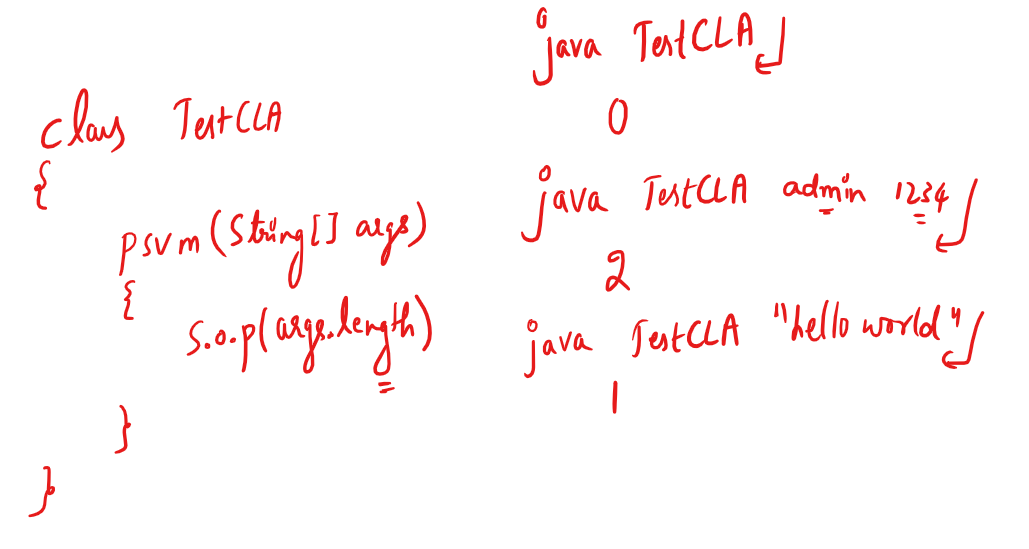 class TestCLA
{
psvm(String[] args)
{
S.o.p(args.length)
}
}
java TestCLA
0
java TestCLA admin 1234
2
java TestCLA "hello world"
1